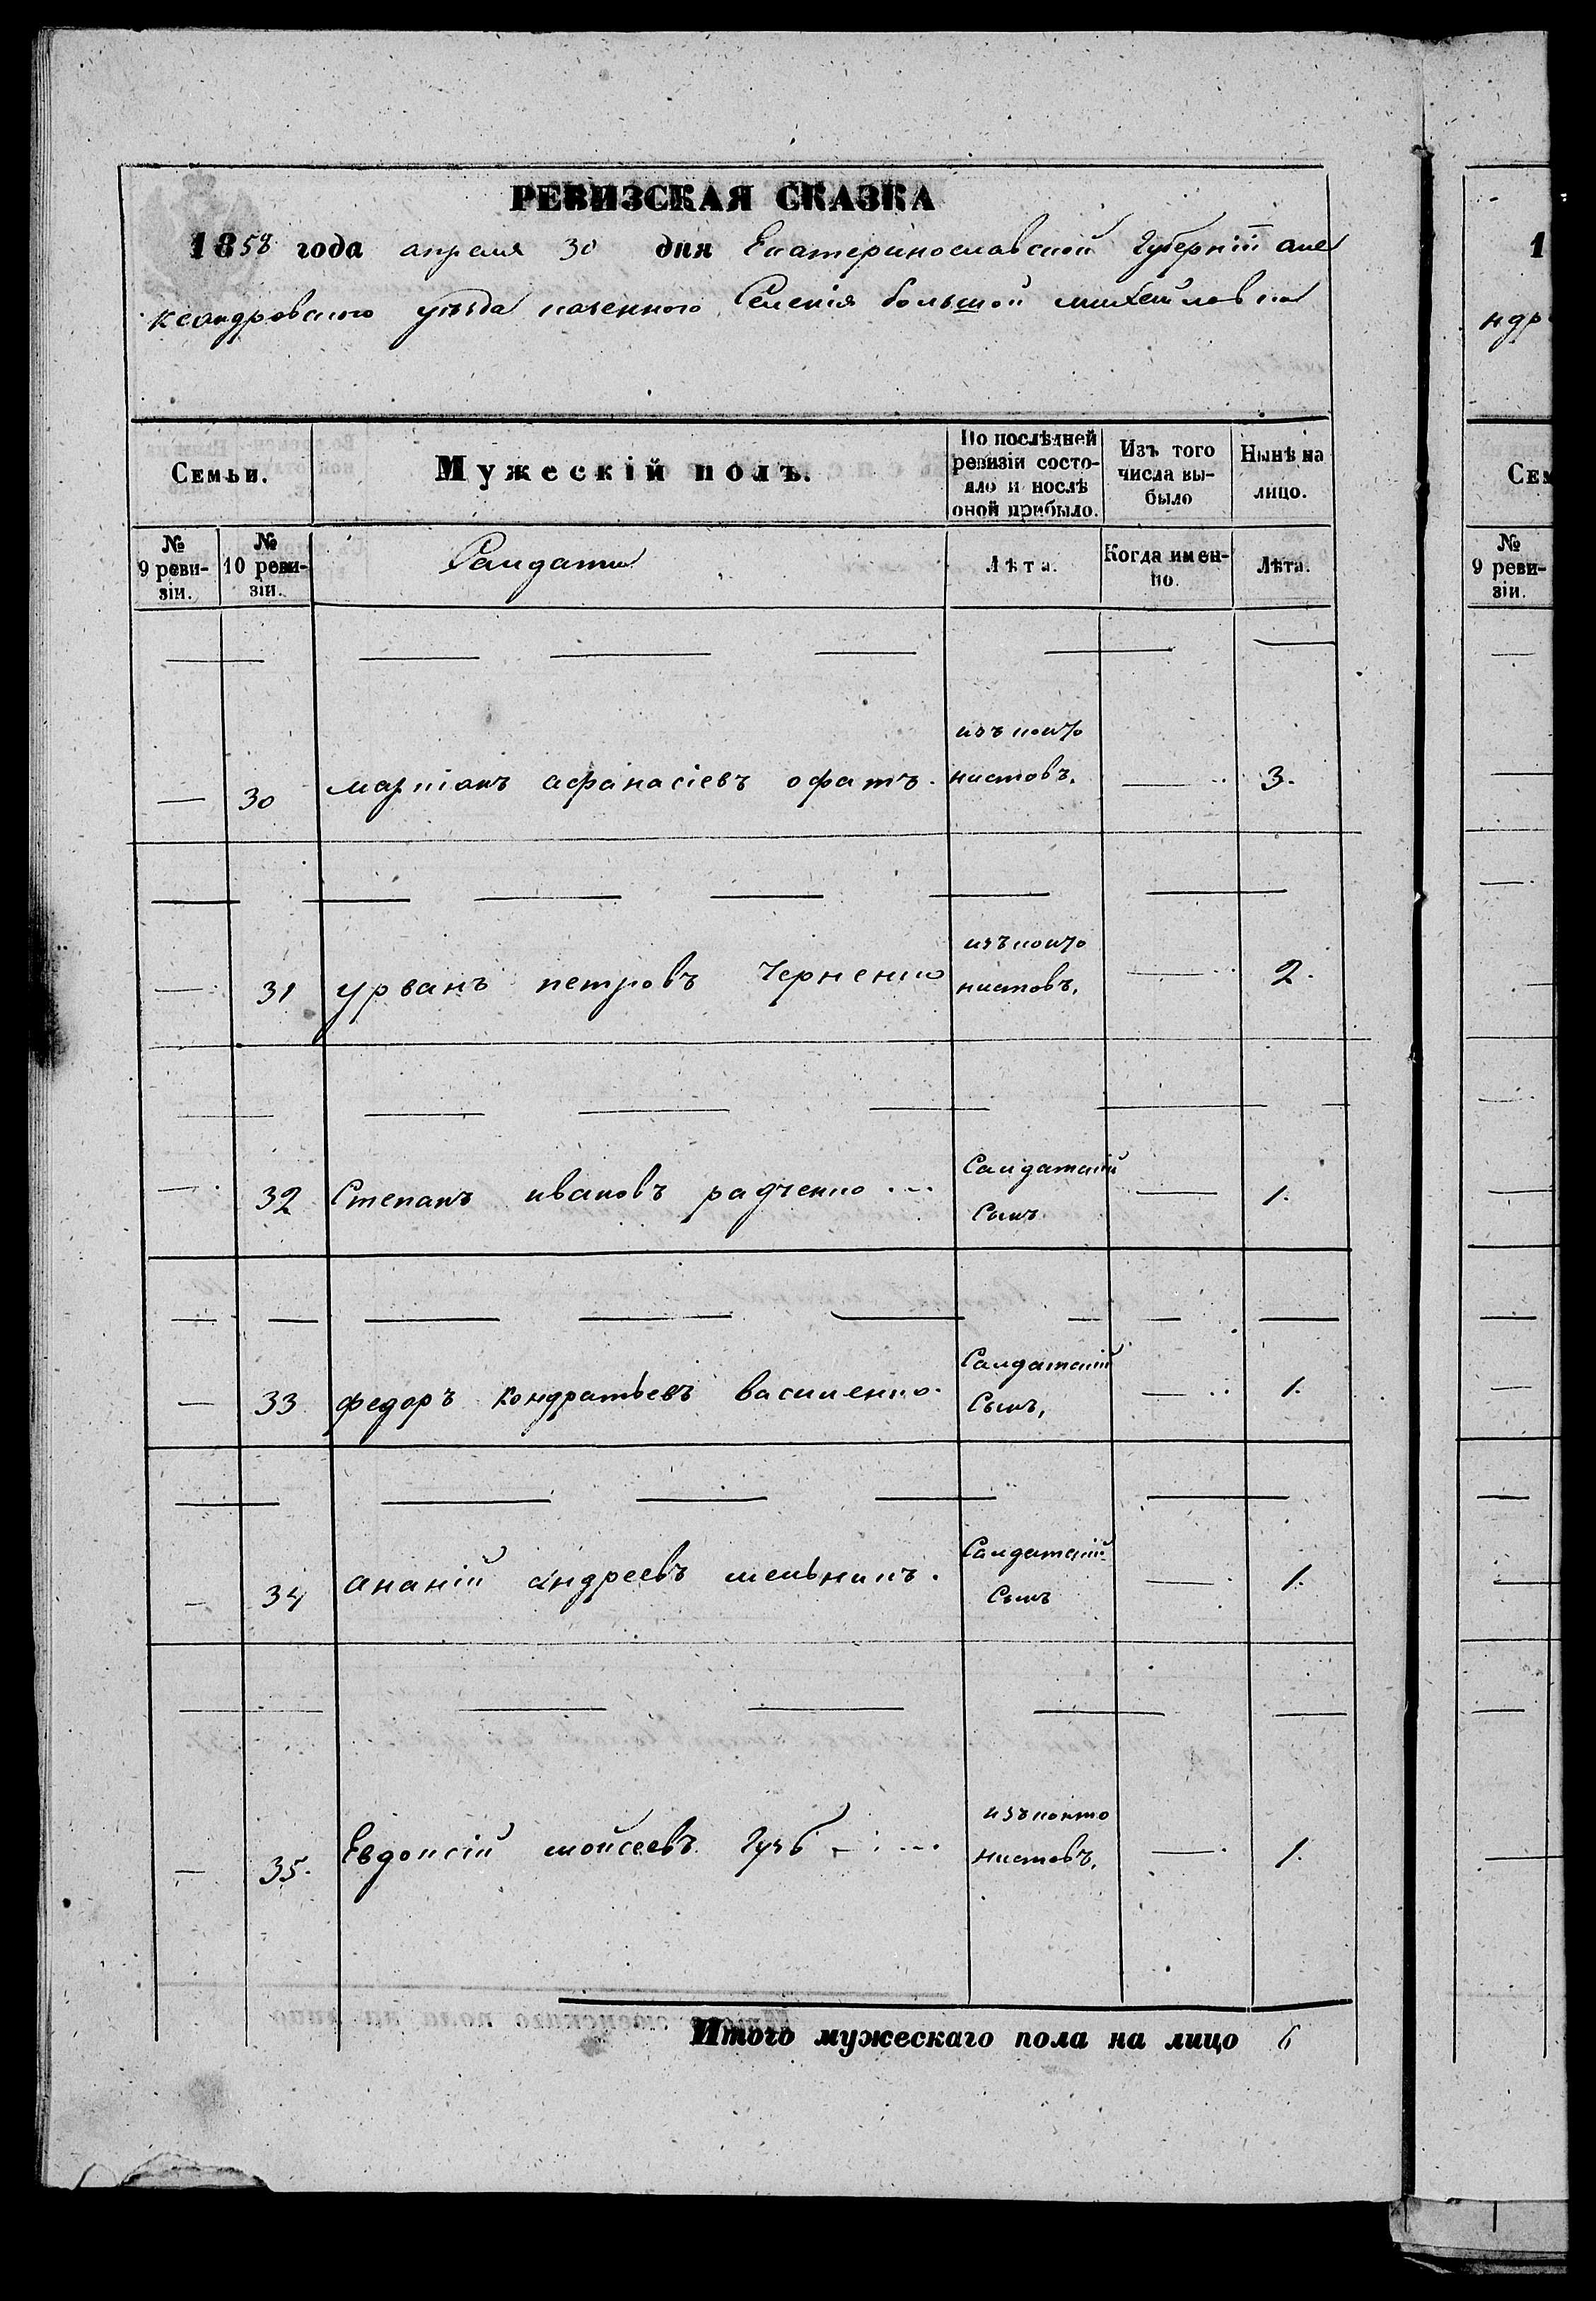 РЕВИЗСКАЯ СКАЗКА
1858 года апреля 30 дня Екатеринославской Губерніи але
ксандровского уезда казенного Селенія большой михайловки
Семьи.
Мужескій полъ.
По послѣдней ревизіи состояло и послѣ оной прибыло.
Изъ того числа выбыло
Нынѣ на лицо.
№ 9 ревизіи.
№ 10 ревизіи.
Салдати
Лѣта.
Когда именно.
Лѣта.
— 30 афанасіевъ изъ кантонистовъ. — 3.
— 31 урванъ петровъ Черненко изъ кантонистовъ. — 2.
— 32 Степанъ ивановъ радченко Салдатскій Сынъ — 1.
— 33 федоръ кондратьевъ василенко. Салдатскій Сынъ, — 1.
— 34 ананій андреевъ мельникъ. Салдатскій Сынъ — 1.
— 35. Евдокій мойсеевъ изъ кантонистовъ. — 1.
Итого мужескаго пола на лицо 6
1
ндр
Сем
№
9 реви-
зіи.